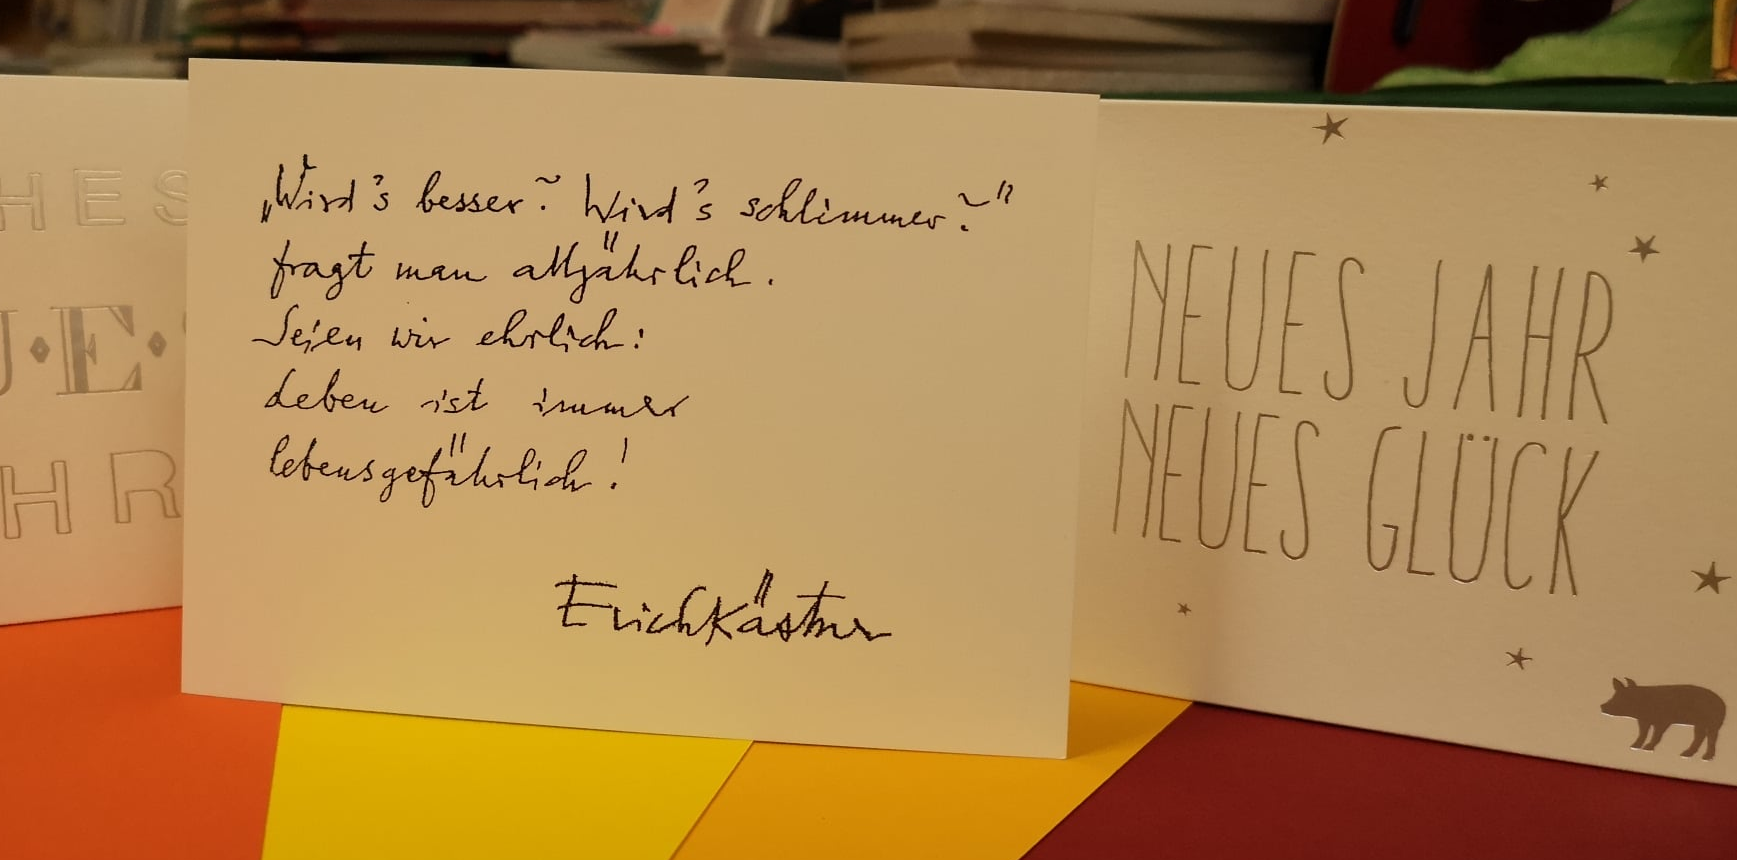 HES
U·E·
HR
„Wird's besser? Wird's schlimmer?"
fragt man alljährlich.
Seien wir ehrlich:
Leben ist immer
lebensgefährlich!
Erich Kästner
NEUES JAHR
NEUES GLÜCK